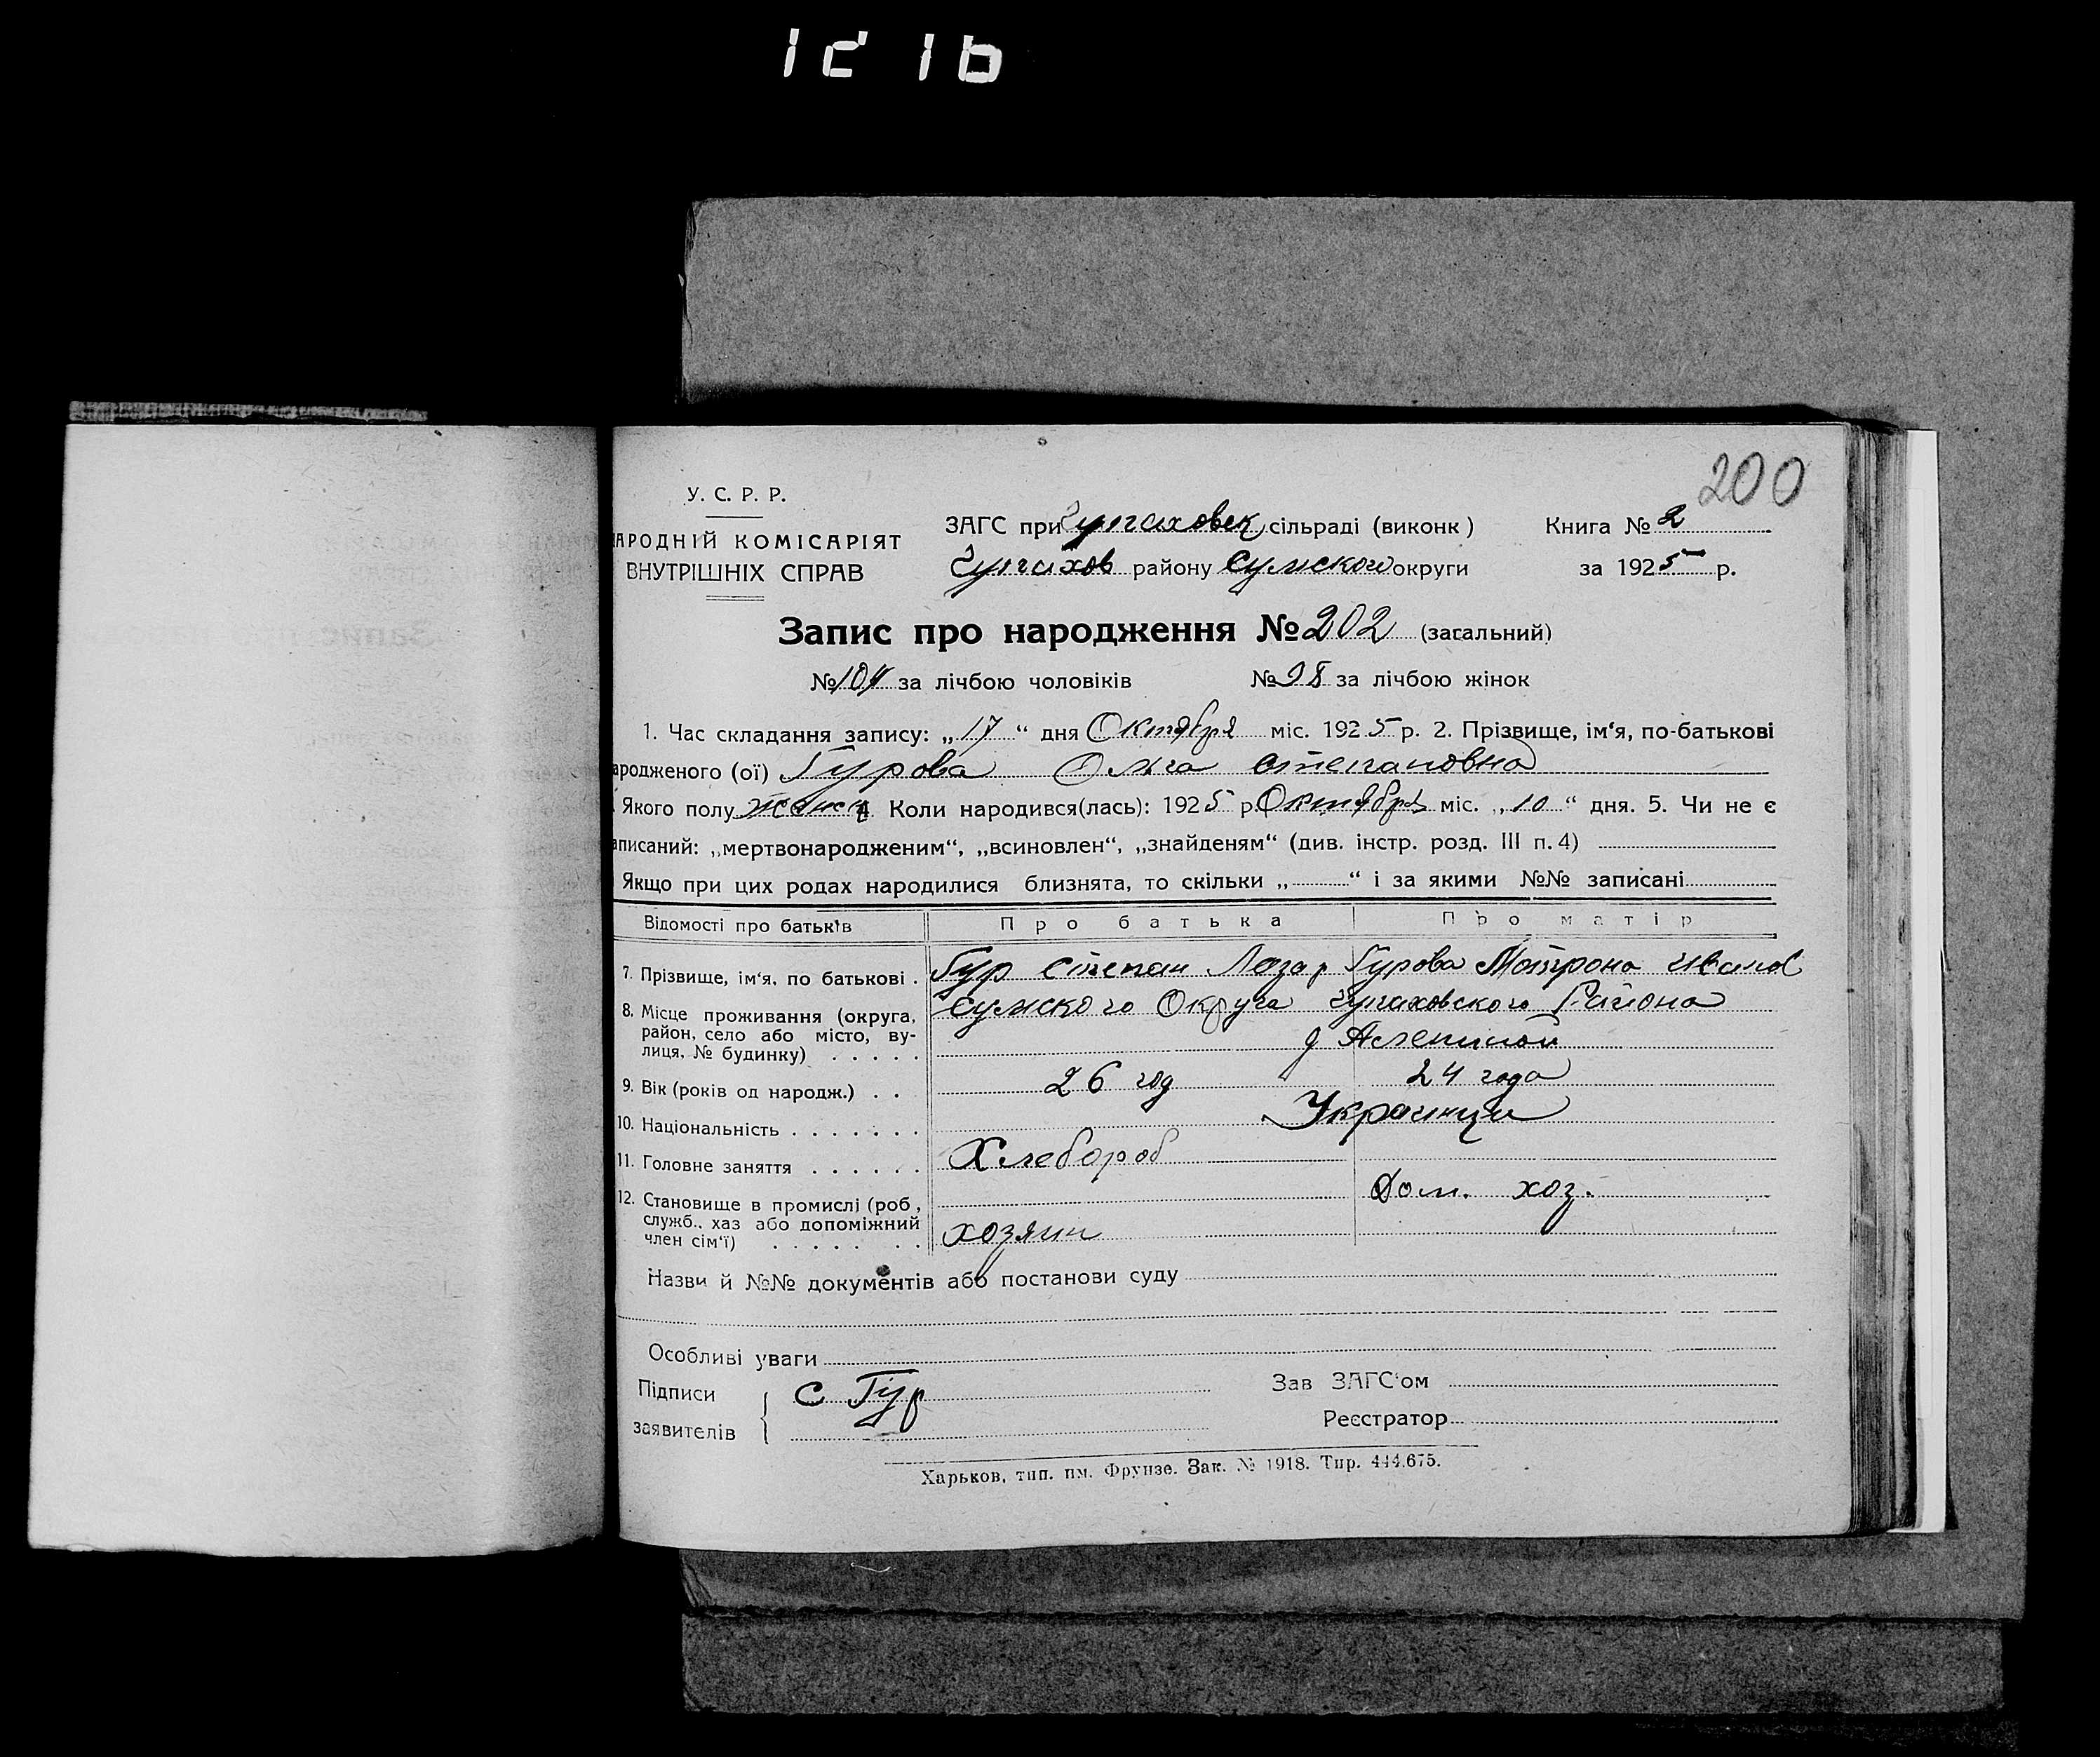 200
У. С. Р. Р.
АРОДНІЙ КОМІСАРІЯТ
ВНУТРІШНІХ СПРАВ
ЗАГС при сільраді (виконк)
району Сумского округи
Книга № 2
за 1925 р.
Запис про народження № 202 (загальний)
№ 104 за лічбою чоловіків № 98 за лічбою жінок
1. Час складання запису: „17“ дня Октября міс. 1925 р. 2. Прізвище, ім‘я, по-батькові
ародженого (ої) Гурова Ольга Степановна
Якого полу женск 4. Коли народився(лась): 1925 р. Октябрь міс. „10“ дня. 5. Чи не є
аписаний: „мертвонародженим“, „всиновлен“, „знайденям“ (див. інстр. розд. III п. 4)
Якщо при цих родах народилися близнята, то скільки „ “ і за якими №№ записані
Відомості про батьків Про батька Про матір
7. Прізвище, ім‘я, по батькові . Гур Степан Лазар Гурова Матрона Иванов
8. Місце проживання (округа, район, село або місто, вулиця, № будинку) . . . . . Сумского Округа Района
д
9. Вік (років од народж.) . . 26 год 24 года
10. Національність . . . . . . . Украинци
11. Головне заняття . . . . . . Хлебороб
Дом. хоз.
12. Становище в промислі (роб,
служб., хаз або допоміжний
член сім‘ї) . . . . . . . хозяин
Назви й №№ документів або постанови суду
Особливі уваги
Підписи
заявителів
С Гур
Зав ЗАГС‘ом
Реєстратор
Харьков, тип. им. Фрунзе. Зак. № 1918. Тир. 444.675.